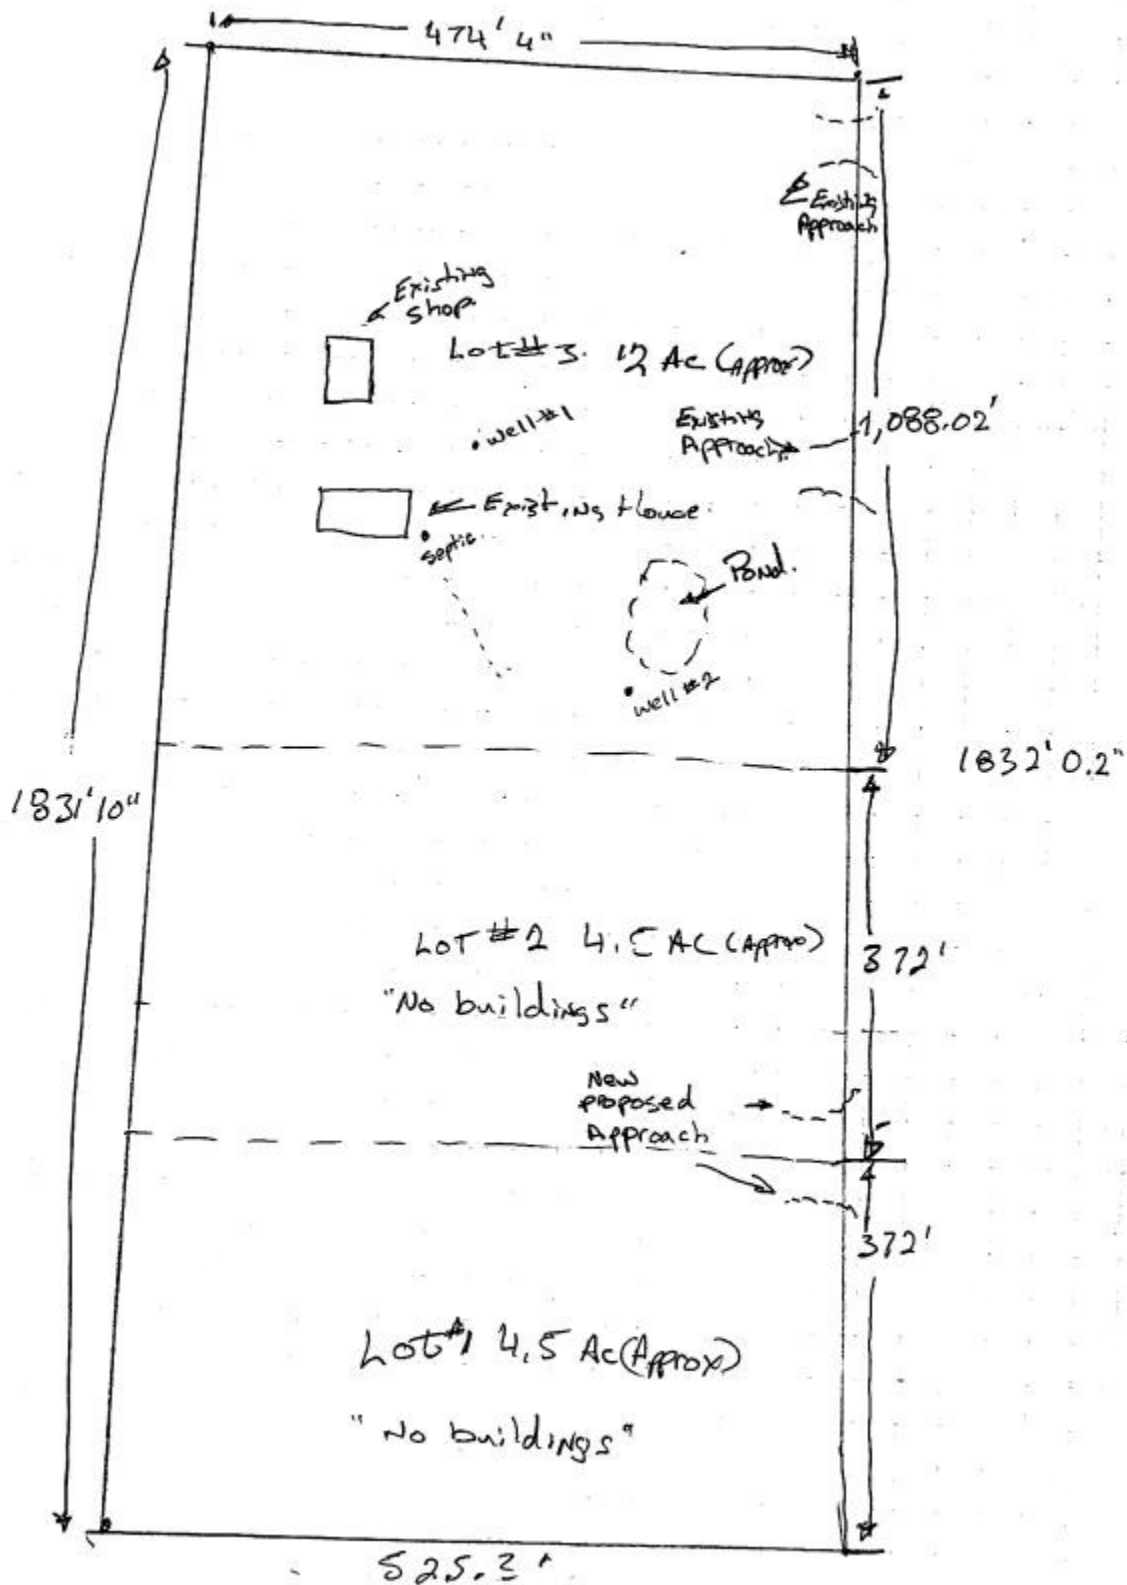 474' 4"
Existing
Approach
Existing
Shop
Lot # 3. 12 Ac (Approx)
well #1
Existing
Approach
1,088.02'
Existing House
septic
Pond.
well #2
1832' 0.2"
1831' 10"
LOT #2 4.5 AC (Approx)
372'
"No buildings"
New
proposed
Approach
372'
Lot #1 4.5 Ac (Approx)
"No buildings"
525.3'